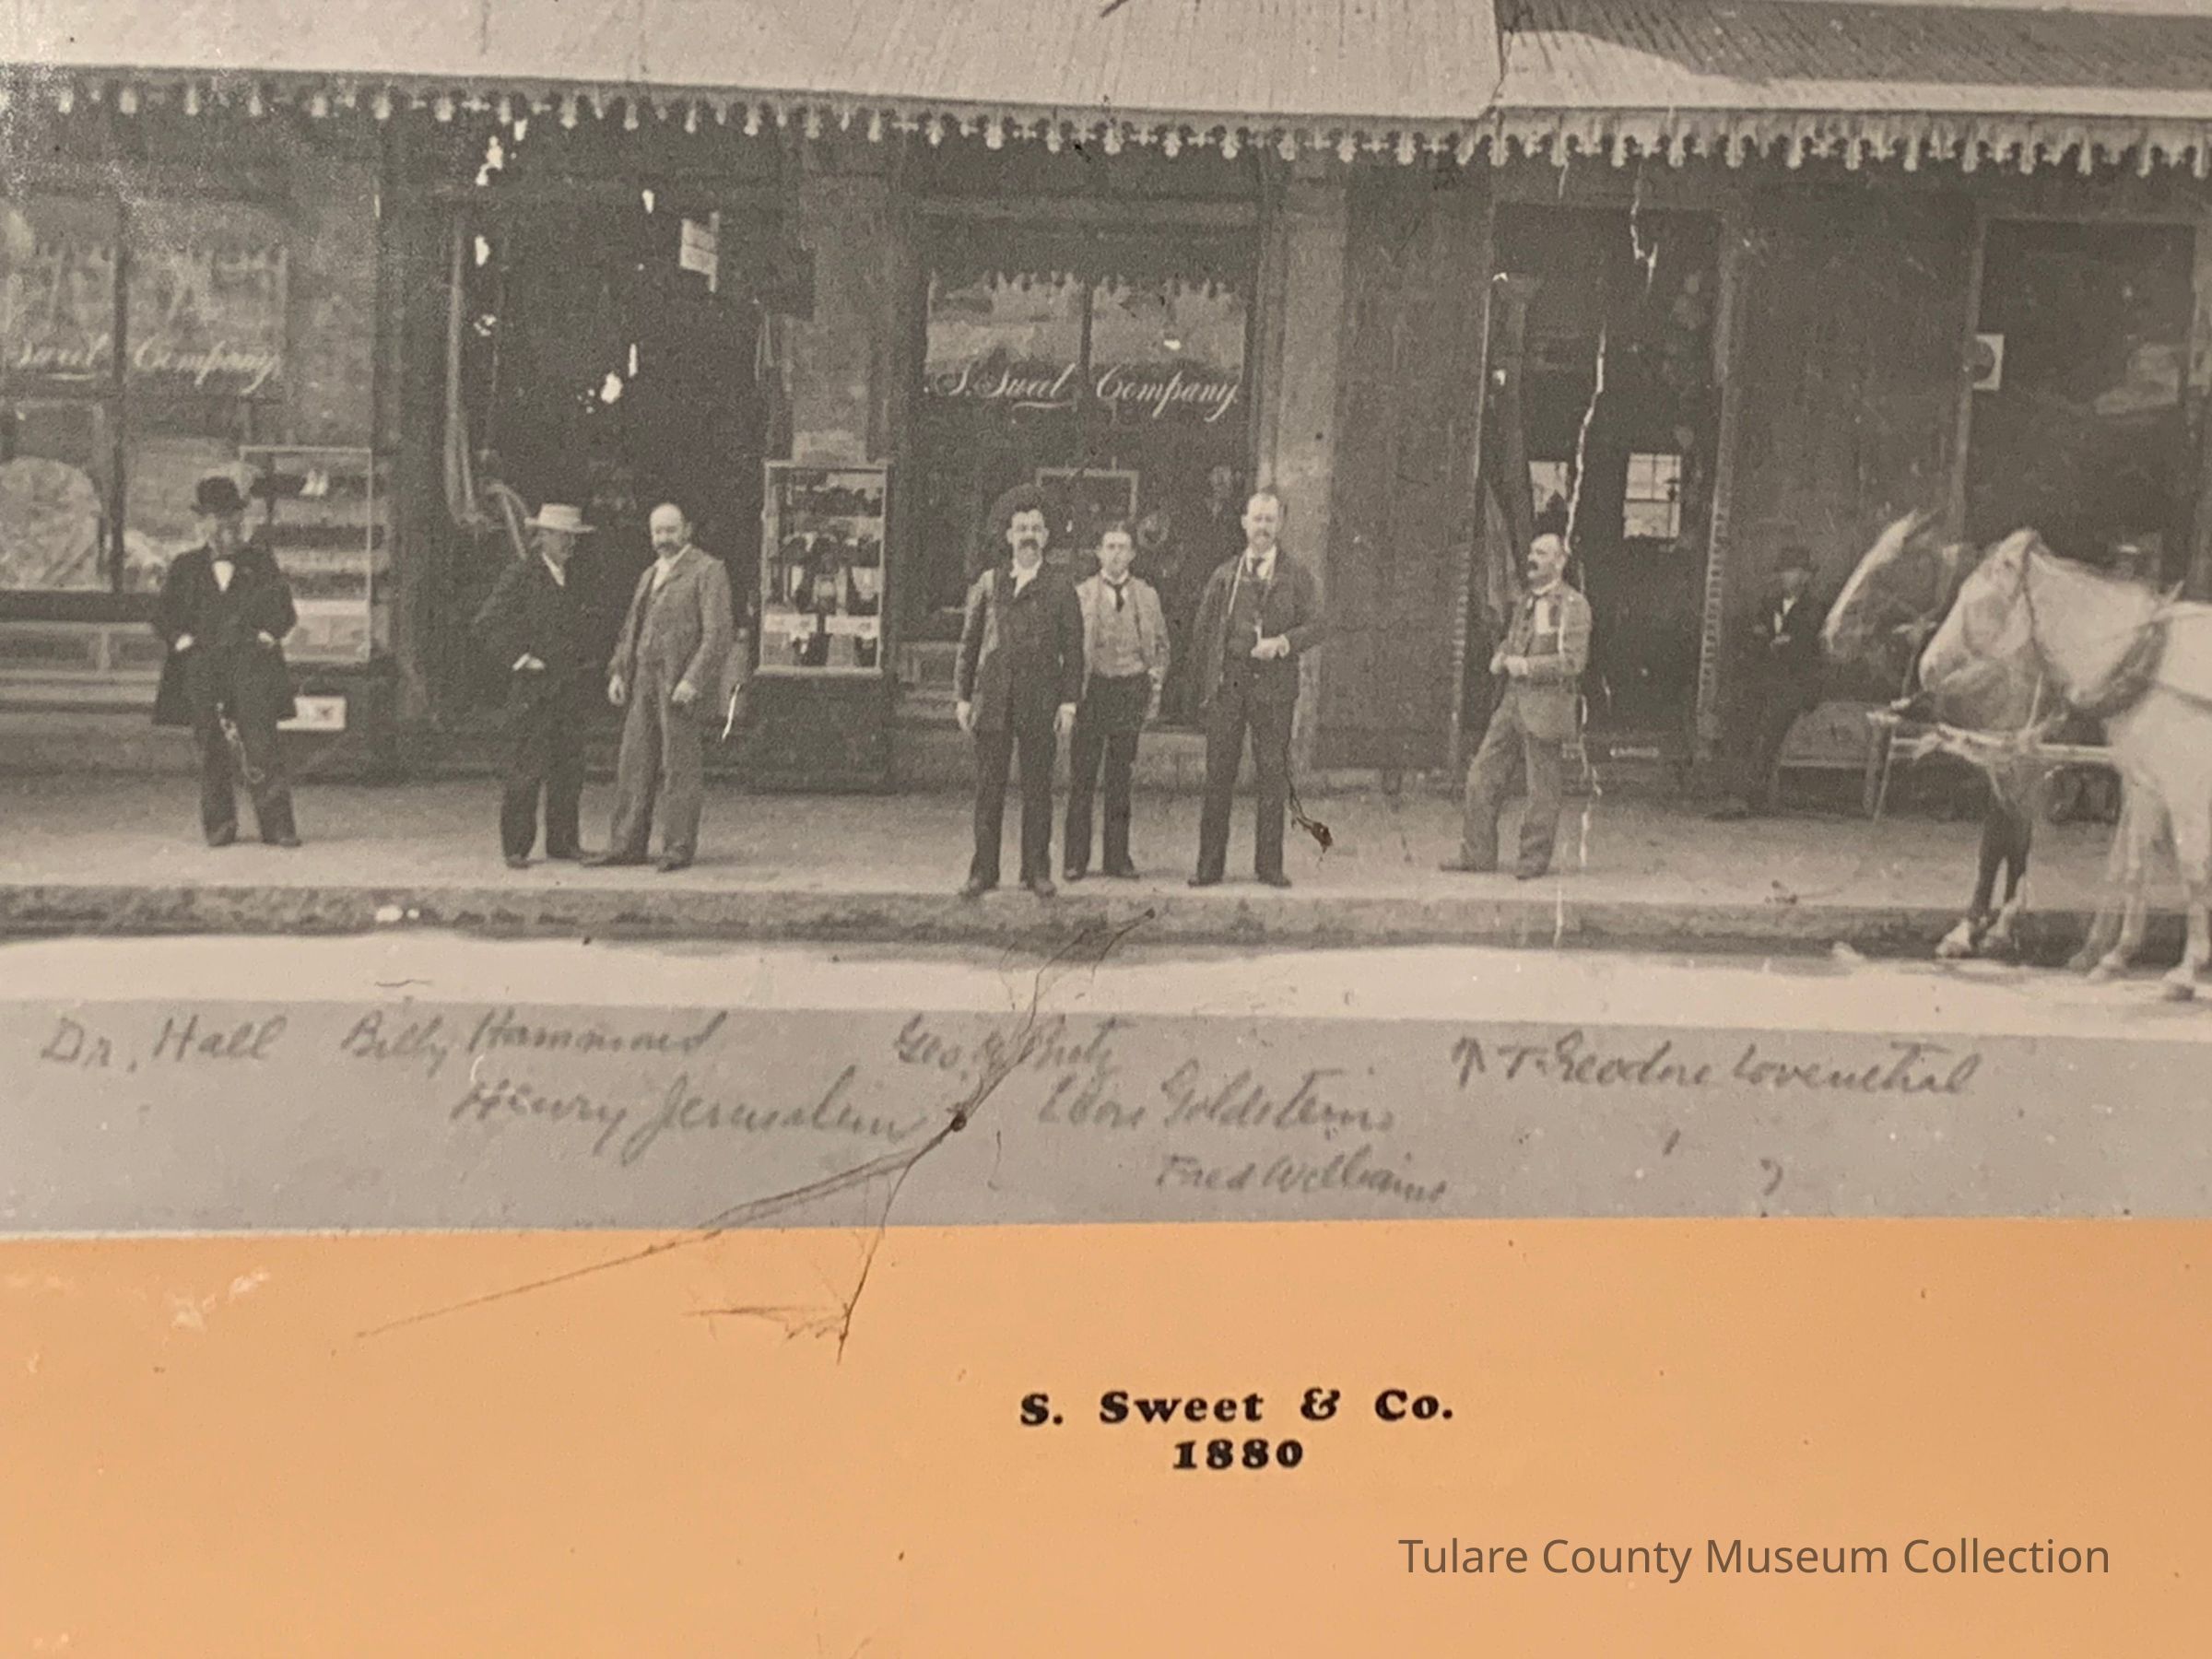 Sweet Company
S. Sweet Company.
Dr. Hall Billy Hammond Geo. ↑ Theodore Lovenethal
Henry Jerusalem Goldsteins
Fred Williams ?
S. Sweet & Co.
1880
Tulare County Museum Collection